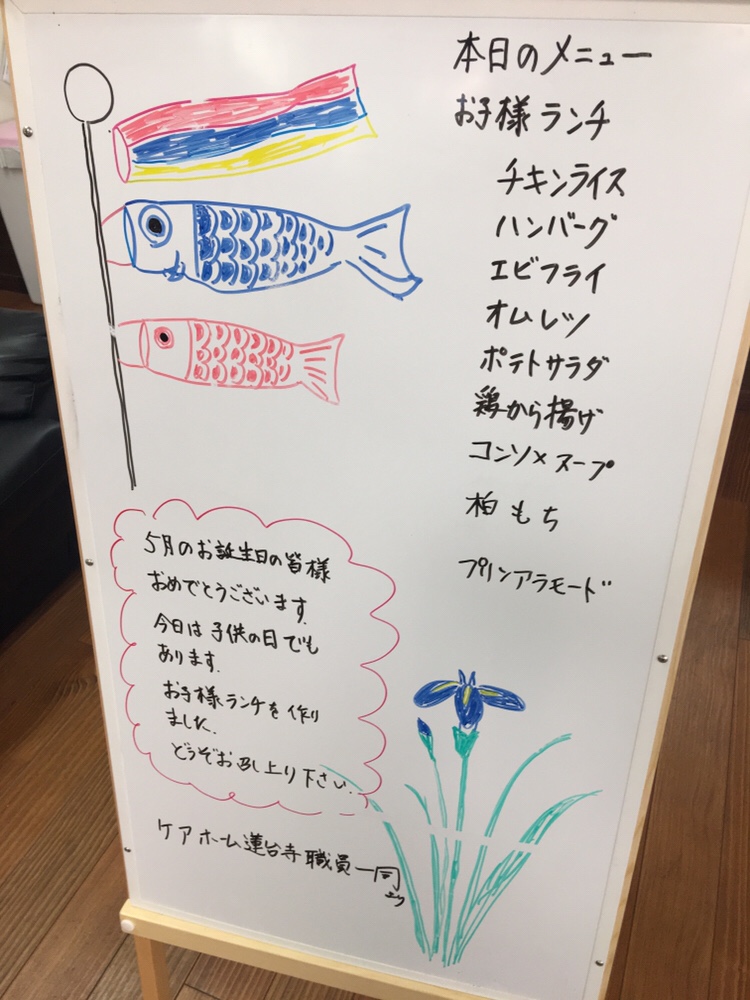 本日のメニュー
お子様ランチ
チキンライス
ハンバーグ
エビフライ
オムレツ
ポテトサラダ
鶏から揚げ
コンソメスープ
柏もち
プリンアラモード
5月のお誕生日の皆様
おめでとうございます。
今日は子供の日でも
あります。
お子様ランチを作り
ました。
どうぞお召し上り下さい。
ケアホーム蓮台寺職員一同
より